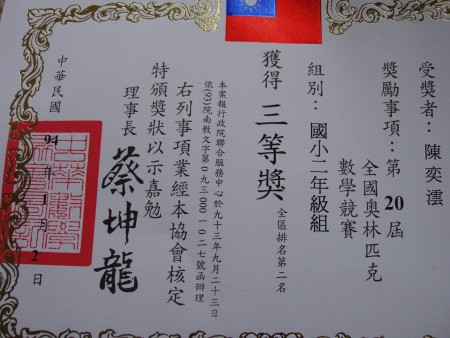 受獎者：陳奕澐
獎勵事項：第20屆
全國奧林匹克
數學競賽
組別：國小二年級組
獲得 三等獎 全區排名第二名
本案報行政院聯合服務中心於九十三年九月二十三日
依(93)院南教文字第０九三０００一０二七號函辦理
右列事項業經本協會核定
特頒獎狀以示嘉勉
理事長 蔡坤龍
中華民國 94 年 1 月 2 日